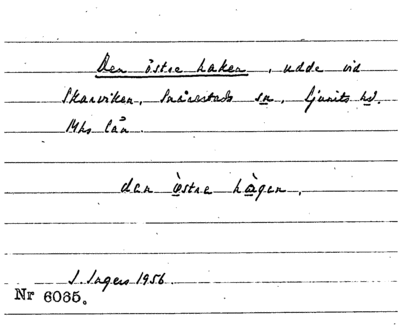 Den östre haken, udde vid
Skarviken, Snårestads sn, Ljunits hd.
Mhs län.
den östre hàgen.
I. Ingers 1956.
Nr 6065.